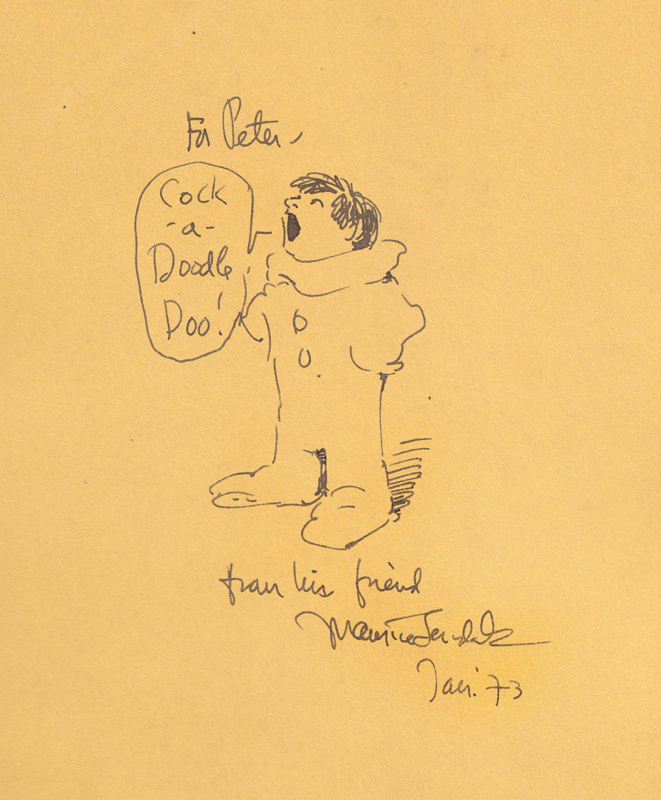 For Peter,
Cock
-a-
Doodle
Doo!
from his friend
Maurice Sendak
Jan. 73